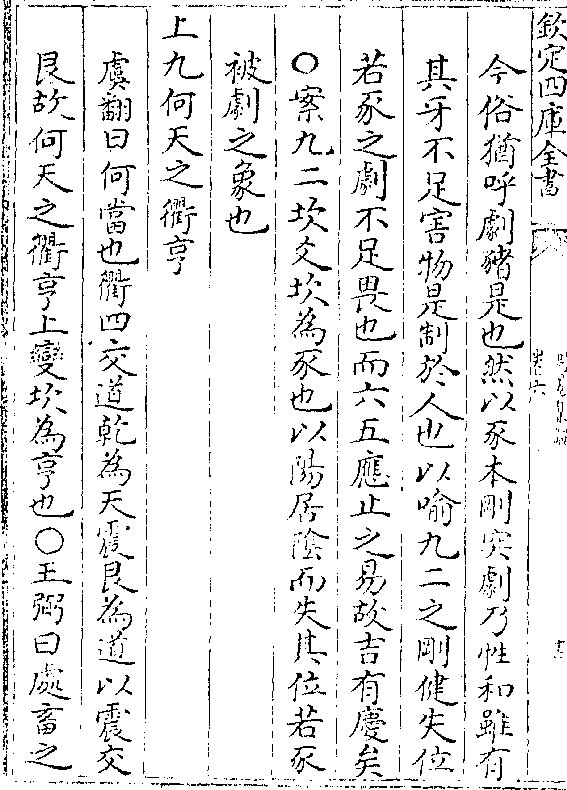 欽定四庫全書
卷六
今俗猶呼劇豬是也然以豕本剛突劇乃性和雖有
其牙不足害物是制於人也以喻九二之剛健失位
若豕之劇不足畏也而六五應止之易故吉有慶矣
○案九二坎爻坎為豕也以陽居陰而失其位若豕
被劇之象也
上九何天之衢亨
虞翻曰何當也衢四交道乾為天震艮為道以震交
艮故何天之衢亨上變坎為亨也○王弼曰處畜之